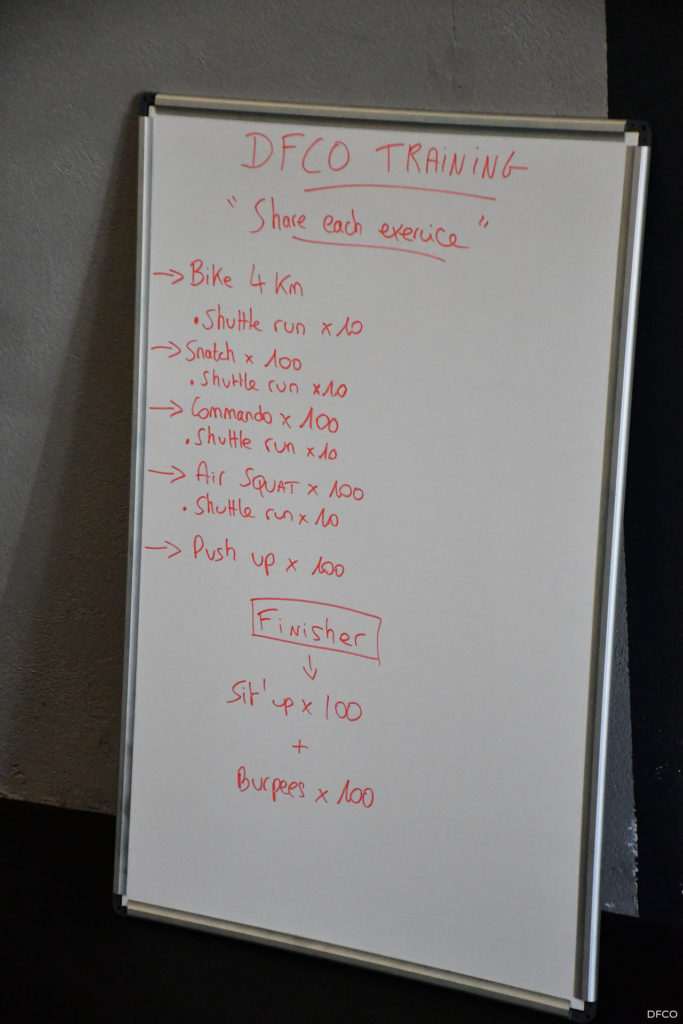 DFCO TRAINING
"Share each exercice"
→ Bike 4 Km
• Shuttle run x 10
→ Snatch x 100
• Shuttle run x 10
→ Commando x 100
• Shuttle run x 10
→ Air SQUAT x 100
• Shuttle run x 10
→ Push up x 100
Finisher
↓
Sit'up x 100
+
Burpees x 100
DFCO